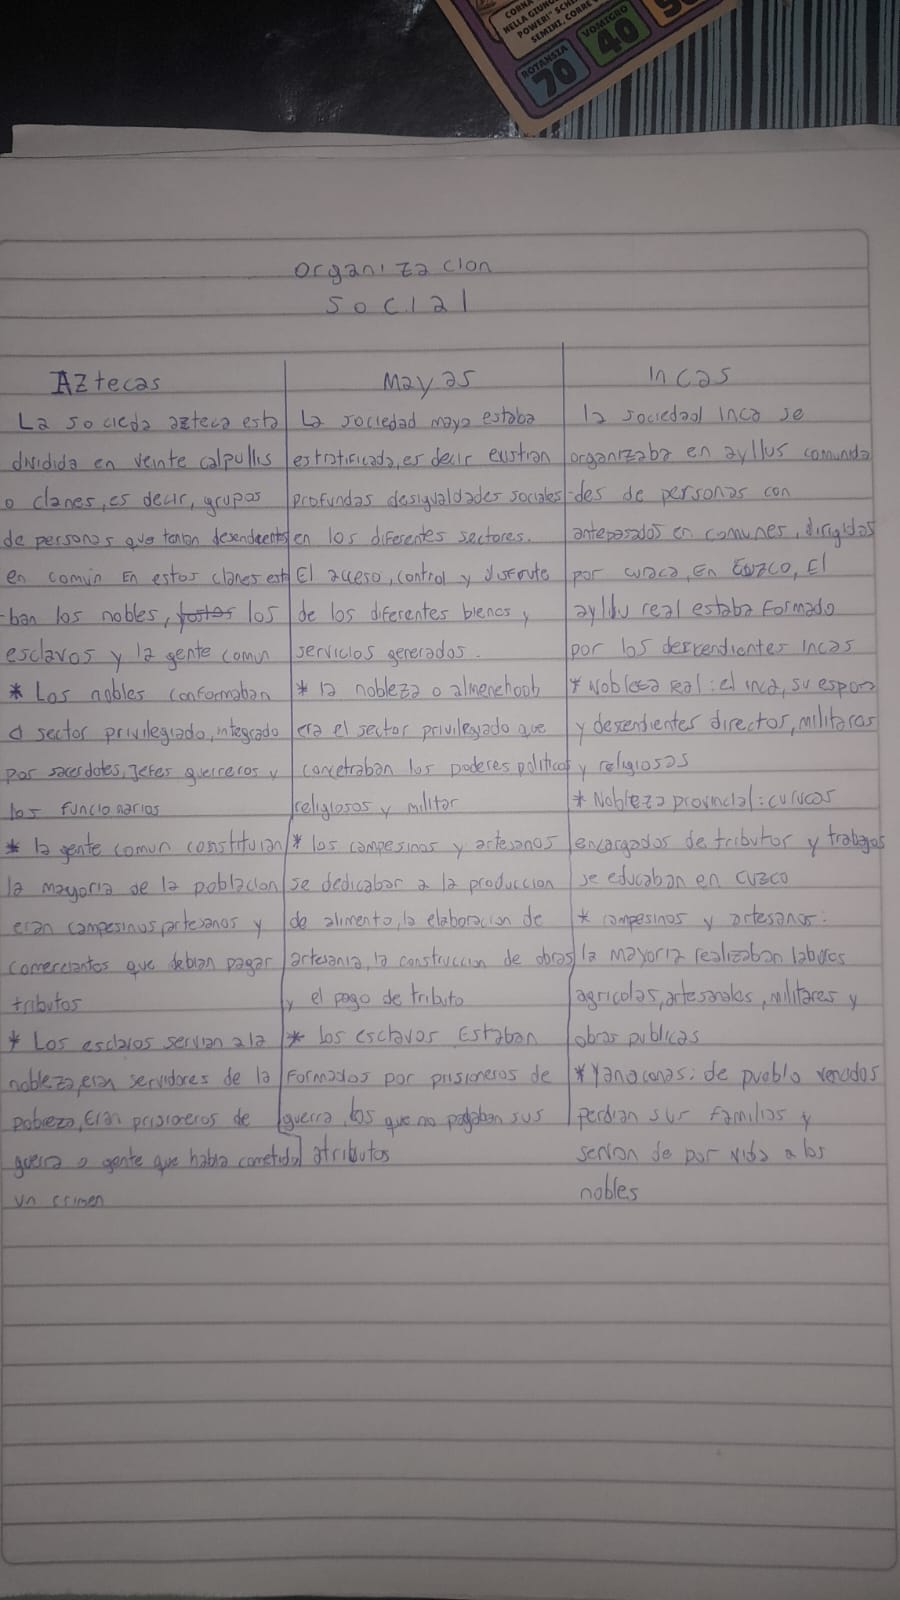 CORNA
NELLA GIUNG
POWER!" SCH
SEMINI. CORRE
ROTANZIA
70
VOMIGRO
40
organizacion
social
Aztecas
La socieda azteca esta
dividida en veinte calpullis
o clanes, es decir, grupos
de personas que tenian desendientes
en común En estos clanes est
-ban los nobles, los
esclavos y la gente comun
* Los nobles conformaban
el sector privilegiado, integrado
por sacerdotes, Jefes guerreros y
los funcionarios
* la gente comun constituian
la mayoria de la poblacion
eran campesinos, artesanos y
comerciantes que debian pagar
tributos
* Los esclavos servian a la
nobleza, eran servidores de la
pobreza, Eran prisioneros de
guerra o gente que habia cometido
un crimen
Mayas
La sociedad maya estaba
estratificada, es decir existian
profundas desigualdades sociales
en los diferentes sectores.
El acceso, control y disfrute
de los diferentes bienes y
servicios generados.
* la nobleza o almenehoob
era el sector privilegiado que
concetraban los poderes politicos
religiosos y militar
* los campesinos y artesanos
se dedicaban a la produccion
de alimento, la elaboracion de
artesania, la construccion de obras
y el pago de tributo
* los esclavos Estaban
formados por prisioneros de
guerra, los que no pagaban sus
atributos
Incas
la sociedad inca se
organizaba en ayllus comunida
-des de personas con
antepasados en comunes, dirigidos
por curaca, En Cuzco, El
ayllu real estaba formado
por los descendientes incas
* Nobleza real: el inca, su espora
y desendientes director, militaras
y religiosas
* Nobleza provincial: curucas
encargados de tributor y trabajos
se educaban en Cuzco
* campesinos y artesanos:
la mayoria realizaban labores
agricolas, artesanales, militares y
obras publicas
* Yanaconas: de pueblo vencidos
perdian sus familias y
servian de por vida a los
nobles